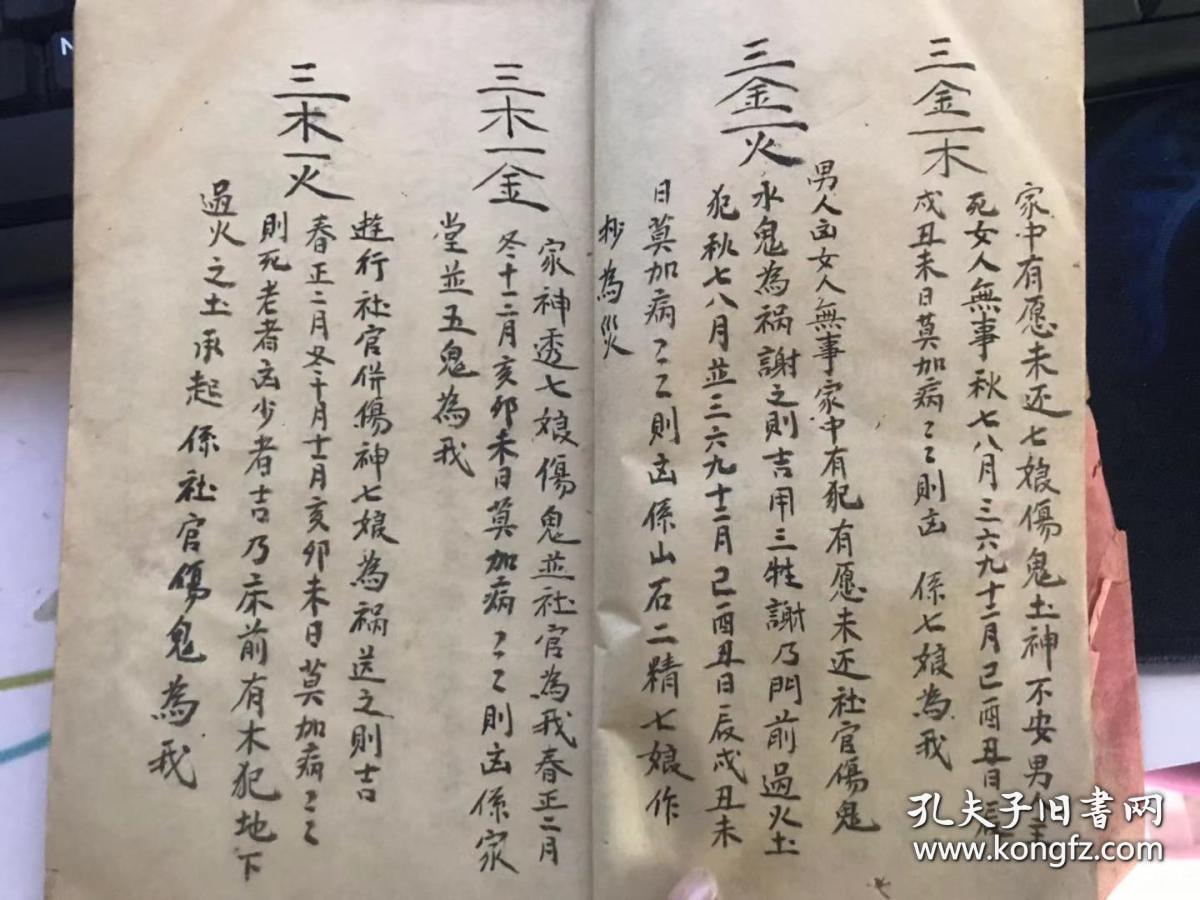 三金一木
家中有愿未还七娘傷鬼土神不安男人主
死女人無事秋七八月三六九十二月己酉丑日辰
戍丑未日莫加病〻〻則凶 係七娘為我
三金一火
男人凶女人無事家中有犯有愿未还社官傷鬼
永鬼為祸謝之則吉用三牲謝乃門前過火土
犯秋七八月並三六九十二月己酉丑日辰戍丑未
日莫加病〻〻則凶係山石二精七娘作
抄為災
三木一金
家神透七娘傷鬼並社官為我春正二月
冬十二月亥卯未日莫加病〻〻則凶係家
堂並五鬼為我
三木一火
遊行社官併傷神七娘為祸送之則吉
春正二月冬十月十二月亥卯未日莫加病〻〻
則死老者凶少者吉乃床前有木犯地下
過火之土承起係社官傷鬼為我
孔夫子旧书网
www.kongfz.com